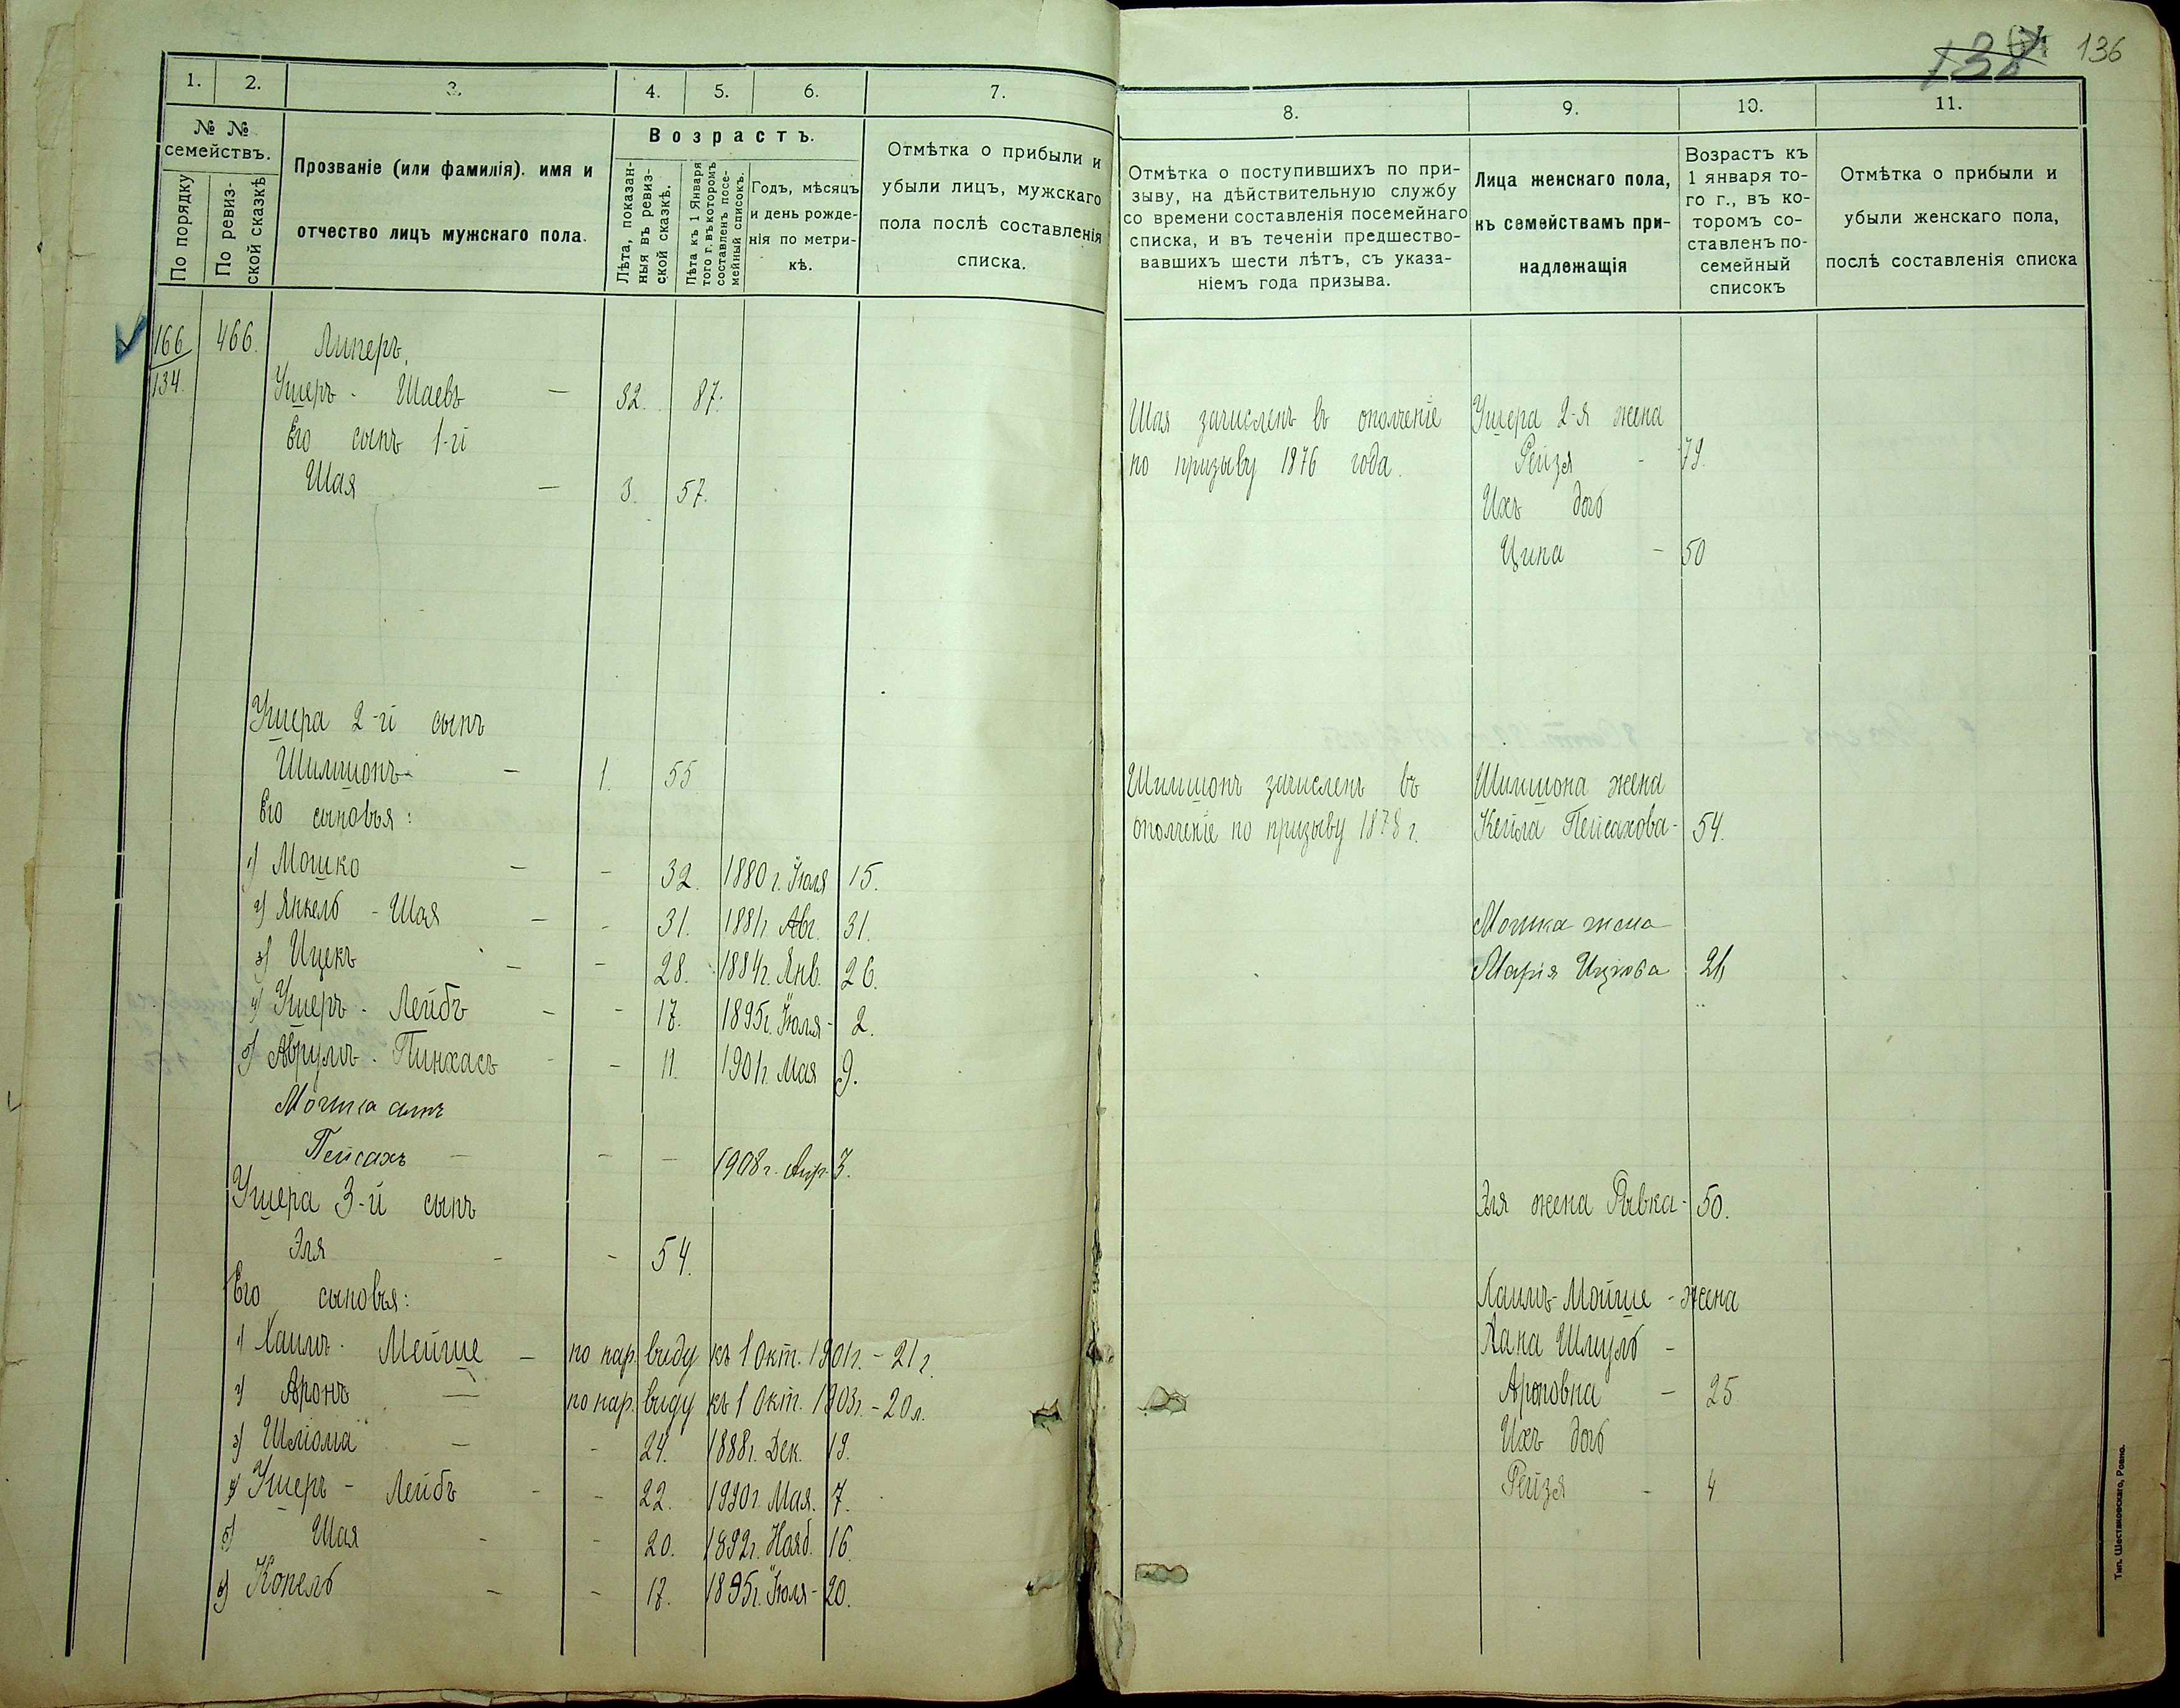 138 136
1. 2. 3. 4. 5. 6. 7.
№ №
семействъ.
По порядку
По ревиз-
ской сказкѣ
Прозваніе (или фамилія). имя и
отчество лицъ мужскаго пола.
Возрастъ.
Лѣта, показан-
ныя въ ревиз-
ской сказкѣ.
Лѣта къ 1 Января
того г. въ которомъ
составленъ посе-
мейный списокъ.
Годъ, мѣсяцъ
и день рожде-
нія по метри-
кѣ.
Отмѣтка о прибыли и
убыли лицъ, мужскаго
пола послѣ составленія
списка.
166 466. Липеръ
134. Ушеръ - Шаевъ — 32. 87.
Его сынъ 1-й
Шая — 3. 57.
Ушера 2-й сынъ
Шимшонъ — 1. 55
Его сыновья:
1) Мошко — - 32. 1880 г. Іюля 15.
2) Янкель - Шая — - 31. 1881г. Авг. 31.
3) Ицекъ — - 28. 1884г. Янв. 26.
4) Ушеръ - Лейбъ - - 17. 1895г. Іюля - 2.
5) Аврумъ - Пинхасъ - - 11. 1901г. Мая 9.
Мошка сынъ
Пейсахъ — - — 1908 г. Апр. 3.
Ушера 3-й сынъ
Эля - - 54.
Его сыновья:
1) Хаимъ - Мейше — по нар. виду къ 1 Окт. 1901г. - 21 г.
2) Аронъ — по нар. виду къ 1 Окт. 1903г. - 20 л.
3) Шлёма — - 24. 1888г. Дек. 19.
4) Ушеръ - Лейбъ - - 22. 1890г. Мая. 7.
5) Шая - - 20. 1892г. Нояб. 16.
6) Копель - - 17. 1895г. Іюля - 20.
8. 9. 10. 11.
Отмѣтка о поступившихъ по при-
зыву, на дѣйствительную службу
со времени составленія посемейнаго
списка, и въ теченіи предшество-
вавшихъ шести лѣтъ, съ указа-
ніемъ года призыва.
Лица женскаго пола,
къ семействамъ при-
надлежащія
Возрастъ къ
1 января то-
го г., въ ко-
торомъ со-
ставленъ по-
семейный
списокъ
Отмѣтка о прибыли и
убыли женскаго пола,
послѣ составленія списка
Шая зачисленъ въ ополченіе Ушера 2-я жена
по призыву 1876 года. Рейзя - 79.
Ихъ дочь
Ципа - 50
Шимшонъ зачисленъ въ Шимшона жена
ополченіе по призыву 1878 г. Кейла Пейсахова - 54.
Мошка жена
Марія Ицкова 21
Эля жена Рывка - 50.
Хаимъ-Мойше - жена
Хана Шмуль -
Ароновна - 25
Ихъ дочь
Рейзя - 4
Тип. Шестаковскаго, Ровно.